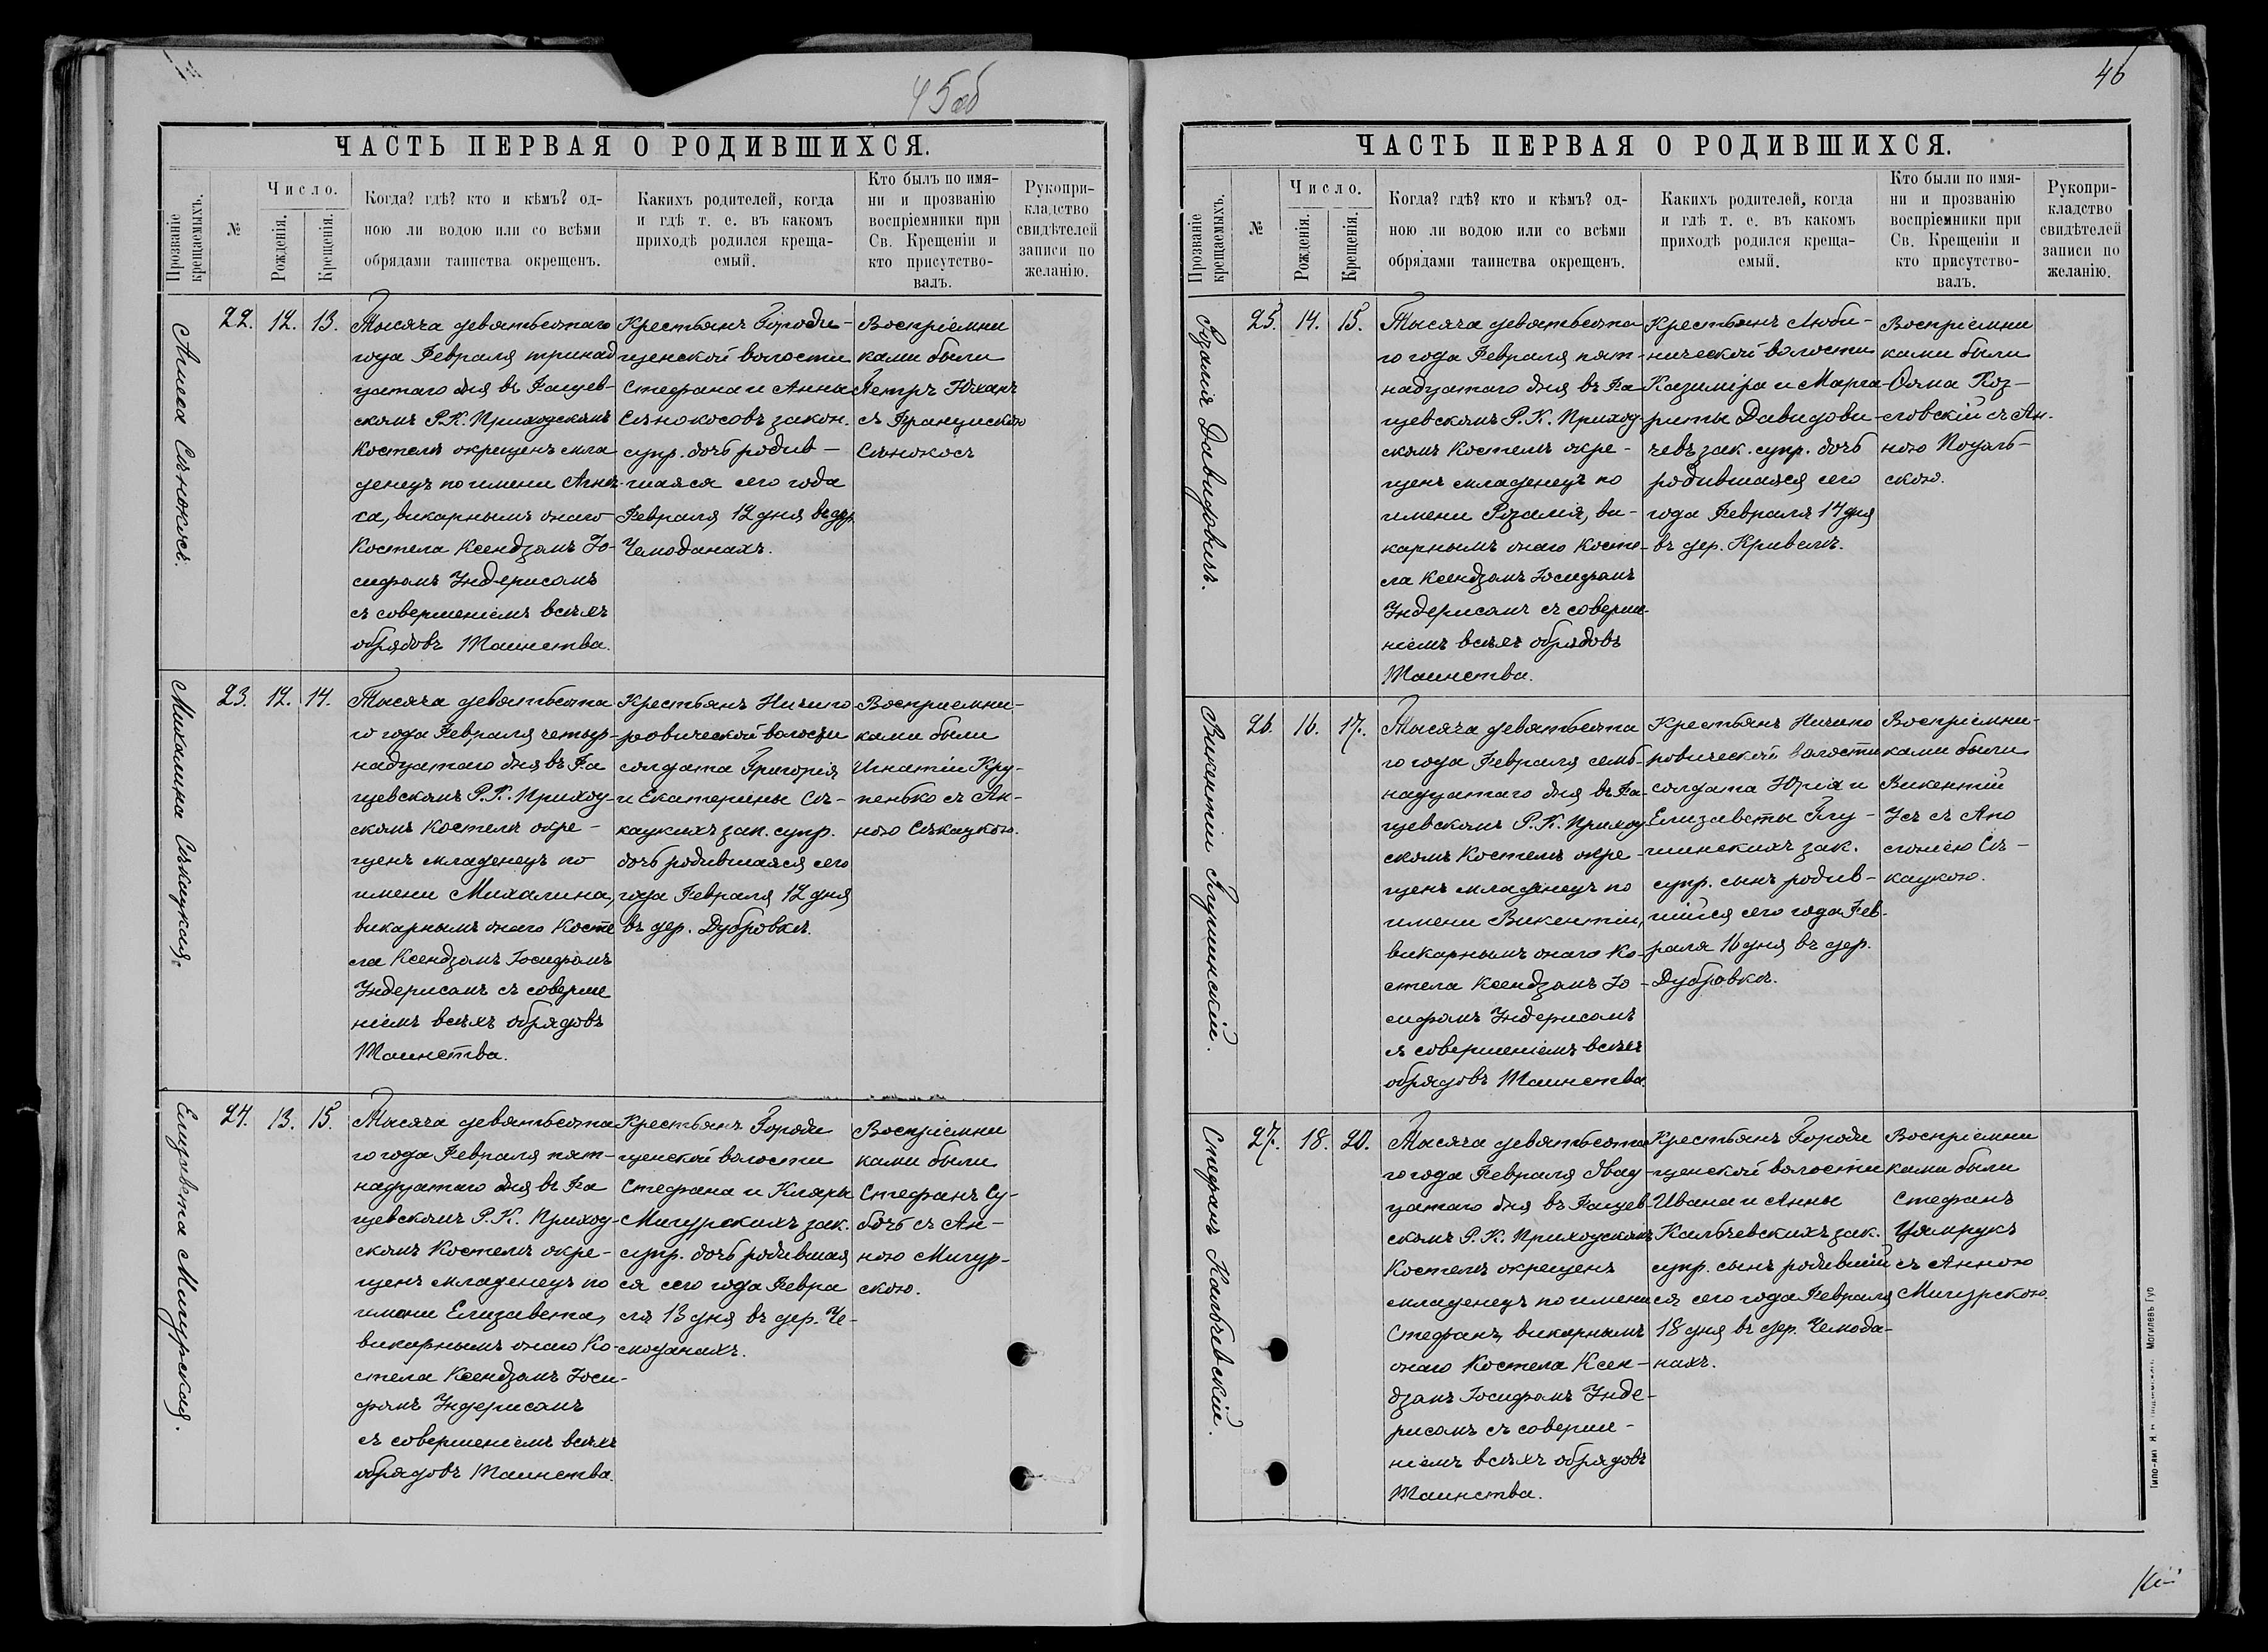 45об
ЧАСТЬ ПЕРВАЯ О РОДИВШИХСЯ.
Прозваніе крещаемыхъ.
№
Число.
Рожденія.
Крещенія.
Когда? гдѣ? кто и кѣмъ? од-
ною ли водою или со всѣми
обрядами таинства окрещенъ.
Какихъ родителей, когда
и гдѣ т. е. въ какомъ
приходѣ родился креща-
емый.
Кто былъ по имя-
ни и прозванію
воспріемники при
Св. Крещеніи и
кто присутство-
валъ.
Рукопри-
кладство
свидѣтелей
записи по
желанію.
Сѣнокосъ.
22. 12. 13.
Тысяча девятьсотаго
года Февраля тринад
цатаго дня въ Фащев-
скомъ Р.К. Приходскомъ
Костелѣ окрещенъ мла
денецъ по имени
викарнымъ онаго
Костела Ксендзомъ Іо-
сифомъ Эндерисомъ
съ совершеніемъ всѣхъ
обрядовъ Таинства.
Крестьянъ Городи-
щенской волости
Стефана и Анны
Сѣнокосовъ закон.
супр. дочь родив-
шаяся сего года
Февраля 12 дня въ дер.
Чемоданахъ.
Воспріемни
ками были
Петръ Юхані
съ Францискою
Сѣнокосъ
Михалина Сѣкацкая.
23. 12. 14.
Тысяча девятьсота
го года Февраля четыр-
надцатаго дня въ Фа
щевскомъ Р.К. Приход-
скомъ Костелѣ окре-
щенъ младенецъ по
имени Михалина,
викарнымъ онаго Косте
ла Ксендзомъ Іосифомъ
Эндерисомъ съ соверше
ніемъ всѣхъ обрядовъ
Таинства.
Крестьянъ Ничипо
ровической волости
солдата Григорія
и Екатерины Сѣ-
кацкихъ зак. супр.
дочь родившаяся сего
года Февраля 12 дня
въ дер. Дубровкѣ.
Восприемни-
ками были
Игнатій Кру-
пенько съ Ан-
ною Сѣкацкою.
Елизавета Мигурская.
24. 13. 15.
Тысяча девятьсота
го года Февраля пят-
надцатаго дня въ Фа
щевскомъ Р.К. Приход-
скомъ Костелѣ окре-
щенъ младенецъ по
имени Елизавета,
викарнымъ онаго Ко-
стела Ксендзомъ Іоси-
фомъ Эндерисомъ
съ совершеніемъ всѣхъ
обрядовъ Таинства.
Крестьянъ Городи
щенской волости
Стефана и Клары
Мигурскихъ зак.
супр. дочь родившая
ся сего года Февра
ля 13 дня въ дер. Че-
моданахъ.
Воспріемни
ками были
Стефанъ Су-
бочь съ Ан-
ною Мигур-
скою.
46
ЧАСТЬ ПЕРВАЯ О РОДИВШИХСЯ.
Прозваніе крещаемыхъ.
№
Число.
Рожденія.
Крещенія.
Когда? гдѣ? кто и кѣмъ? од-
ною ли водою или со всѣми
обрядами таинства окрещенъ.
Какихъ родителей, когда
и гдѣ т. е. въ какомъ
приходѣ родился креща-
емый.
Кто были по имя-
ни и прозванію
воспріемники при
Св. Крещеніи и
кто присутство-
валъ.
Рукопри-
кладство
свидѣтелей
записи по
желанію.
Розалія Давидовичъ.
25. 14. 15.
Тысяча девятьсота
го года Февраля пят-
надцатаго дня въ Фа
щевскомъ Р.К. Приход-
скомъ Костелѣ окре-
щенъ младенецъ по
имени Розалія, ви-
карнымъ онаго Косте-
ла Ксендзомъ Іосифомъ
Эндерисомъ съ соверше-
ніемъ всѣхъ обрядовъ
Таинства.
Крестьянъ Люби-
нической волости
Казиміра и Марга-
риты Давидови-
чевъ зак. супр. дочь
родившаяся сего
года Февраля 14 дня
въ дер. Кривелѣ.
Воспріемни
ками были
Ѳома Коз-
ловскій съ Ан-
ною Подоль-
скою.
Викентій Глушинскій.
26. 16. 17.
Тысяча девятьсота
го года Февраля семь
надцатаго дня въ Фа-
щевскомъ Р.К. Приход
скомъ Костелѣ окре-
щенъ младенецъ по
имени Викентій,
викарнымъ онаго Ко-
стела Ксендзомъ Іо-
сифомъ Эндерисомъ
съ совершеніемъ всѣхъ
обрядовъ Таинства.
Крестьянъ Ничипо
ровической волости
солдата Юрія и
Елизаветы Глу-
шинскихъ зак.
супр. сынъ родив-
шійся сего года Фев-
раля 16 дня въ дер.
Дубровкѣ.
Воспріемни-
ками были
Викентій
Усъ съ Апо
лоніею Сѣ-
кацкою.
Стефанъ Кальчевскій.
27. 18. 20.
Тысяча девятьсота
го года Февраля двад-
цатаго дня въ Фащев
скомъ Р.К. Приходскомъ
Костелѣ окрещенъ
младенецъ по имени
Стефанъ, викарнымъ
онаго Костела Ксен-
дзомъ Іосифомъ Энде-
рисомъ съ соверше-
ніемъ всѣхъ обрядовъ
Таинства.
Крестьянъ Городи
щенской волости
Ивана и Анны
Кальчевскихъ зак.
супр. сынъ родившій
ся сего года Февраля
18 дня въ дер. Чемода-
нахъ.
Воспріемни
ками были
Стефанъ
Цямрукъ
съ Анною
Мигурскою.
Могилевъ Губ